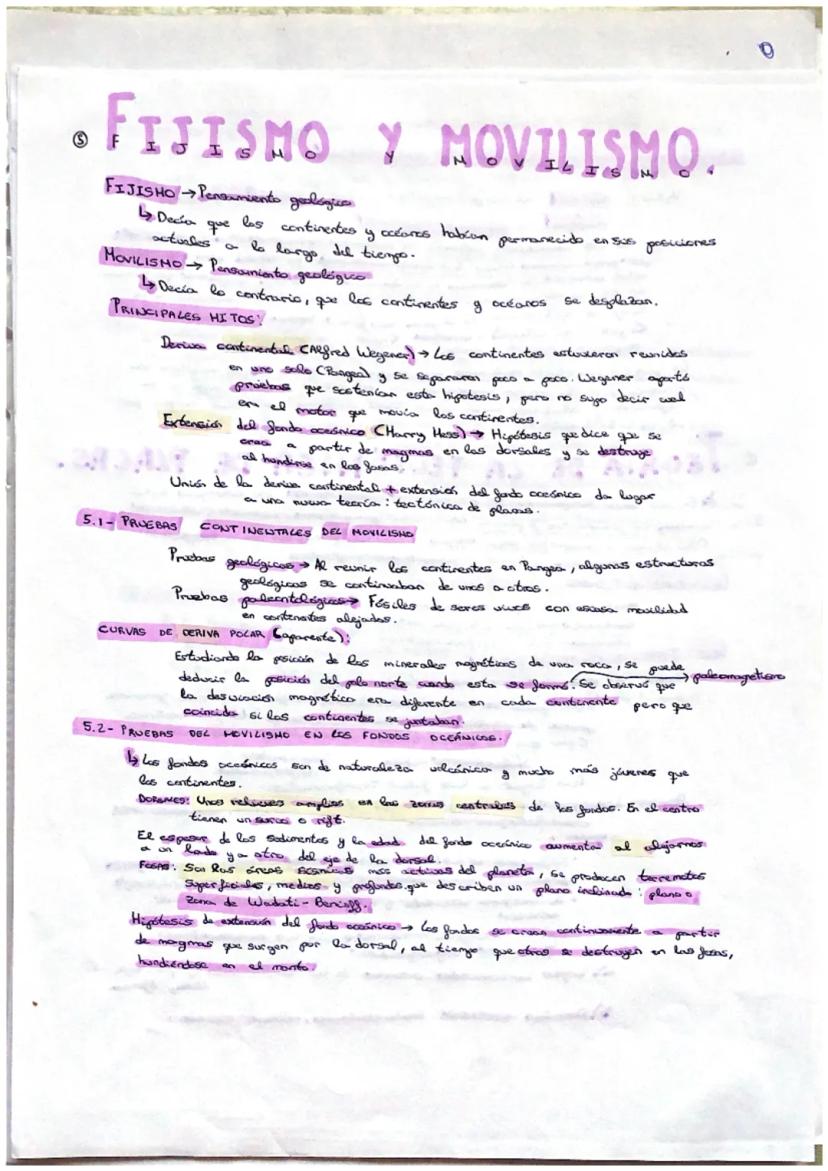 ⑤ FIJISMO Y MOVILISMO.
FIJISMO → Pensamiento geológico
↳ Decía que los continentes y océanos habían permanecido en sus posiciones
actuales a lo largo del tiempo.
MOVILISMO → Pensamiento geológico
↳ Decía lo contrario, que los continentes y océanos se desplazan.
PRINCIPALES HITOS:
Deriva continental (Alfred Wegener) → Los continentes estuvieron reunidos
en uno solo (Pangea) y se separaron poco a poco. Wegener aportó
pruebas que sostenían esta hipótesis, pero no supo decir cual
era el motor que movía los continentes.
Extensión del fondo oceánico (Harry Hess) → Hipótesis que dice que se
crea a partir de magmas en las dorsales y se destruye
al hundirse en las fosas.
Unión de la deriva continental + extensión del fondo oceánico da lugar
a una nueva teoría: tectónica de placas.
5.1- PRUEBAS CONTINENTALES DEL MOVILISMO
Pruebas geológicas → Al reunir los continentes en Pangea, algunas estructuras
geológicas se continuaban de unos a otros.
Pruebas paleontológicas → Fósiles de seres vivos con escasa movilidad
en continentes alejados.
CURVAS DE DERIVA POLAR (aparente):
Estudiando la posición de los minerales magnéticos de una roca, se puede
deducir la posición del polo norte cuando esta se formó. Se observó que → paleomagnetismo
la desviación magnética era diferente en cada continente pero que
coincidía si los continentes se juntaban.
5.2- PRUEBAS DEL MOVILISMO EN LOS FONDOS OCEÁNICOS.
↳ Los fondos oceánicos son de naturaleza volcánica y mucho más jóvenes que
los continentes.
DORSALES: Unos relieves amplios en las zonas centrales de los fondos. En el centro
tienen un surco o rift.
El espesor de los sedimentos y la edad del fondo oceánico aumentan al alejarnos
a un lado y a otro del eje de la dorsal.
FOSAS: Son las áreas sísmicas más activas del planeta, se producen terremotos
superficiales, medios y profundos que describen un plano inclinado: plano o
zona de Wadati-Benioff.
Hipótesis de extensión del fondo oceánico → Los fondos se crean continuamente a partir
de magmas que surgen por la dorsal, al tiempo que otros se destruyen en las fosas,
hundiéndose en el manto.